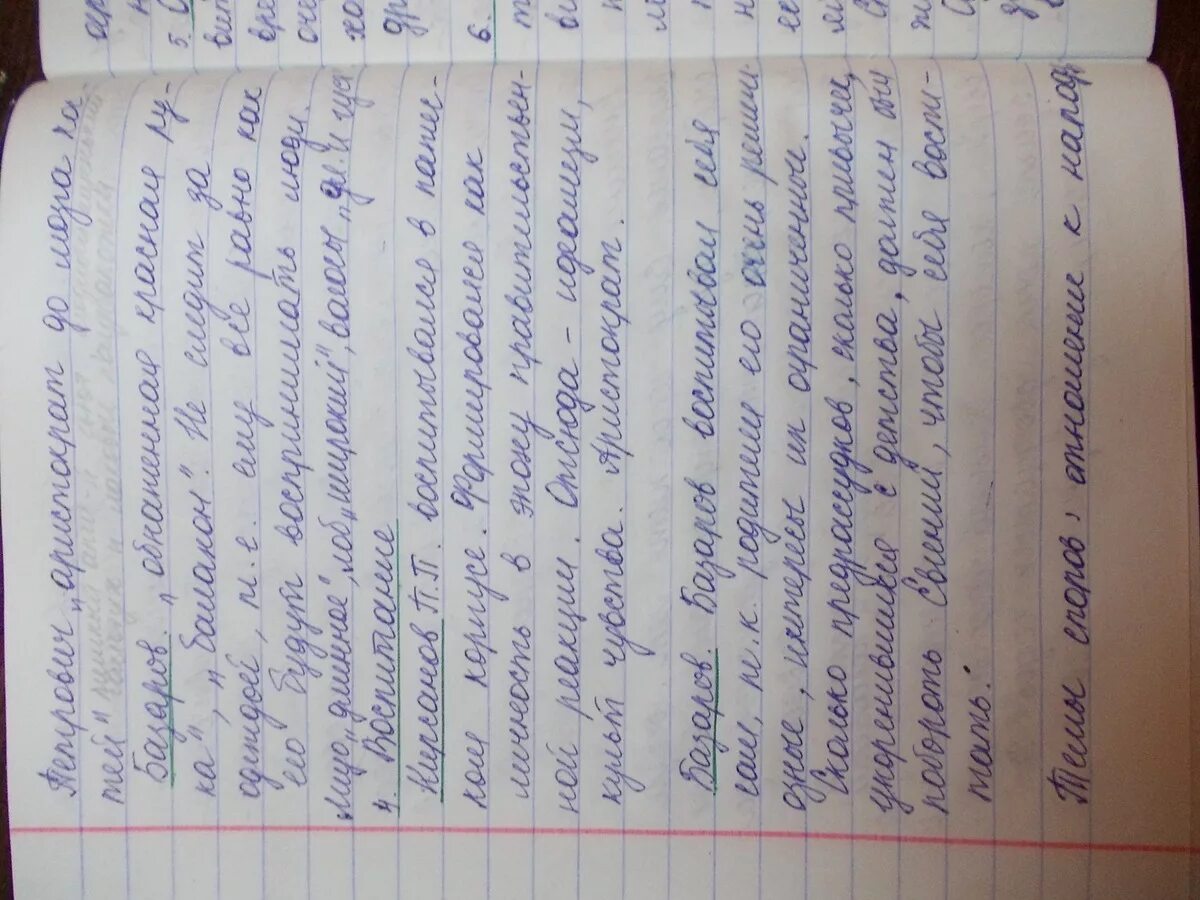 Петрович "аристократ до мозга кос-
тей"
Базаров. "обнаженная красная ру-
ка", "балахон". Не следит за
одеждой, т.е. ему всё равно как
его будут воспринимать люди.
лицо "длинное", лоб "широкий", волосы "дл. и гус
4. Воспитание
Кирсанов П.П. воспитывался в пажес-
ком корпусе. Формировался как
личность в эпоху правительствен-
ной реакции. Отсюда - идеалы,
культ чувства. Аристократ.
Базаров. Базаров воспитывал себя
сам, т.к. родители его очень religi
озные, интересы их ограниченные.
Сколько предрассудков, сколько привычек,
укоренившихся с детства, должен был
побороть Евгений, чтобы себя воспи-
тать.
Темы споров: отношение к народу
5.
6.